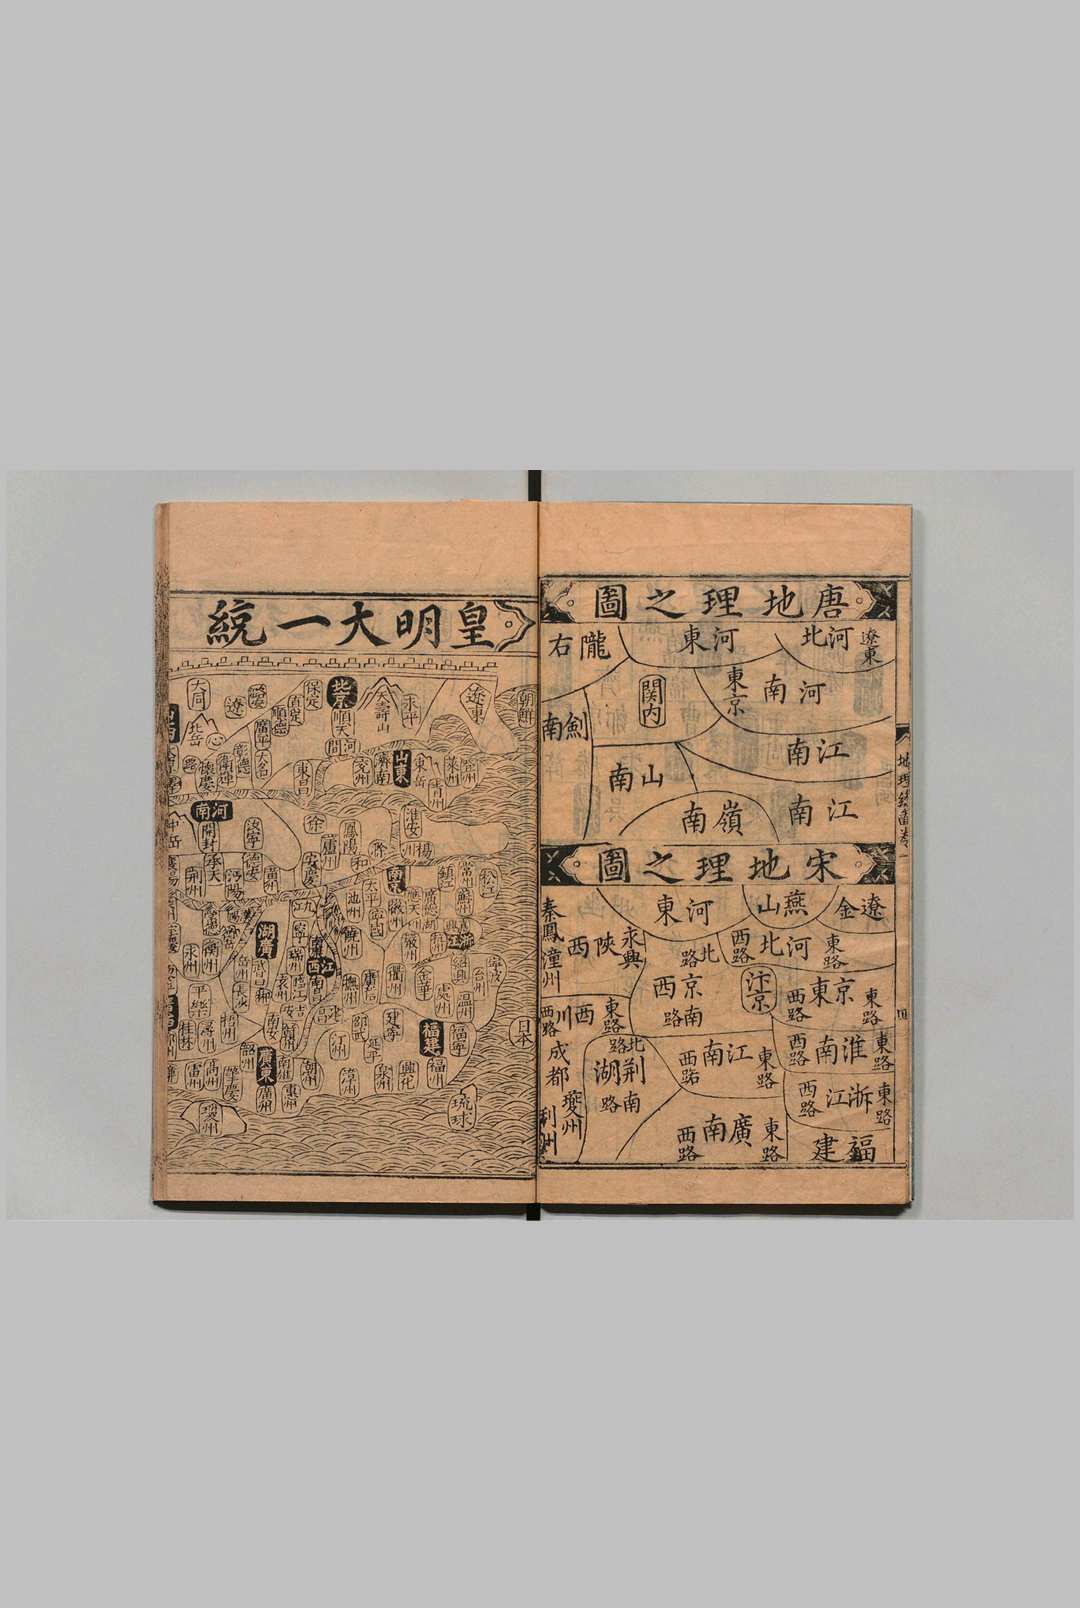 唐地理之圖
遼東
河北
河東
隴右
河南
東京
關内
劍南
江南
山南
江南
嶺南
宋地理之圖
遼金
燕山
河東
永興
陝西
秦鳳
潼州
東路
河北
西路
北路
東路
京東
西路
汴京
京西
南路
東路
淮南
西路
東路
浙江
西路
福建
東路
江南
西路
東路
廣南
西路
荆湖
北路
南路
東路
西川
西路
成都
夔州
利州
皇明大一統
朝鮮
遼東
永平
天壽山
北京
順天
河間
保定
真定
順德
廣平
大名
大同
北岳
彰德
衛輝
懷慶
東昌
登州
萊州
青州
東岳
山東
濟南
兗州
河南
開封
汝寧
中岳
淮安
揚州
鳳陽
徐
廬州
和
滁
安慶
南京
應天
太平
鎮江
常州
松江
蘇州
廣德
寧國
徽州
池州
承天
德安
荆州
沔陽
黃州
九江
湖廣
岳州
長沙
江西
南昌
饒州
瑞州
袁州
臨江
吉安
撫州
廣信
建昌
南安
贛州
浙江
嘉興
嚴州
衢州
金華
紹興
寧波
台州
處州
温州
福建
福州
福寧
建寧
延平
邵武
汀州
興化
泉州
漳州
廣東
廣州
惠州
潮州
南雄
韶州
肇慶
高州
雷州
瓊州
平樂
桂林
梧州
潯州
永州
衡州
日本
琉球